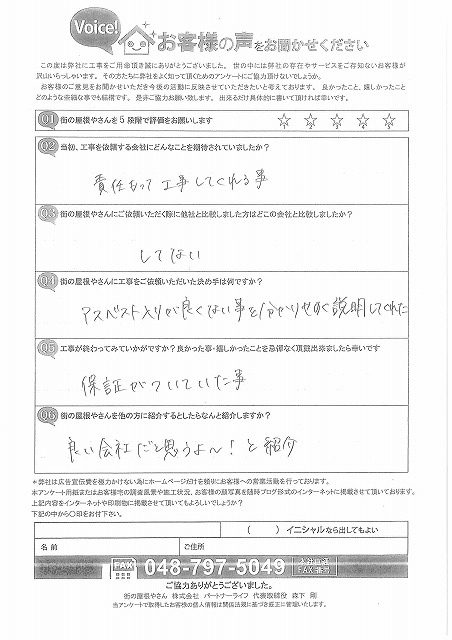 Voice!
お客様の声をお聞かせください
この度は弊社に工事をご用命頂き誠にありがとうございました。 世の中には弊社の存在やサービスをご存知ないお客様が
沢山いらっしゃいます。その方たちに弊社をよく知って頂くためのアンケートにご協力頂けないでしょうか。
お客様のご意見をお聞かせいただき今後の活動に反映させていただきたいと考えております。 良かったこと、嬉しかったこと
どのような些細な事でも結構です。 是非ご協力お願い致します。 出来るだけ具体的に書いて頂ければ幸いです。
Q1 街の屋根やさんを5段階で評価をお願いします ☆ ☆ ☆ ☆ ☆
Q2 当初、工事を依頼する会社にどんなことを期待されていましたか？
責任もって工事してくれる事
Q3 街の屋根やさんにご依頼いただく際に他社と比較しました方はどこの会社と比較しましたか？
してない
Q4 街の屋根やさんに工事をご依頼いただいた決め手は何ですか？
アスベスト入りが良くない事を分かりやすく説明してくれた
Q5 工事が終わってみていかがですか？良かった事・嬉しかったことを忌憚なく頂戴出来ましたら幸いです
保証がついていた事
Q6 街の屋根やさんを他の方に紹介するとしたらなんと紹介しますか？
良い会社だと思うよ～！と紹介
＊弊社は広告宣伝費を極力かけない為にホームページだけを頼りにお客様への営業活動を行っております。
本アンケート用紙またはお客様宅の調査風景や施工状況、お客様の顔写真を随時ブログ形式のインターネットに掲載させて頂いております。
上記内容をインターネットや印刷物に掲載させて頂いてもよろしいでしょうか？
下記の中から○印をお付下さい。
（　　）イニシャルなら出してもよい
名前 ご住所
FAX 048-797-5049
ご協力ありがとうございました。
街の屋根やさん 株式会社 パートナーライフ 代表取締役 森下 剛
当アンケートで取得したお客様の個人情報は関係法規に基づき厳正に管理いたします。